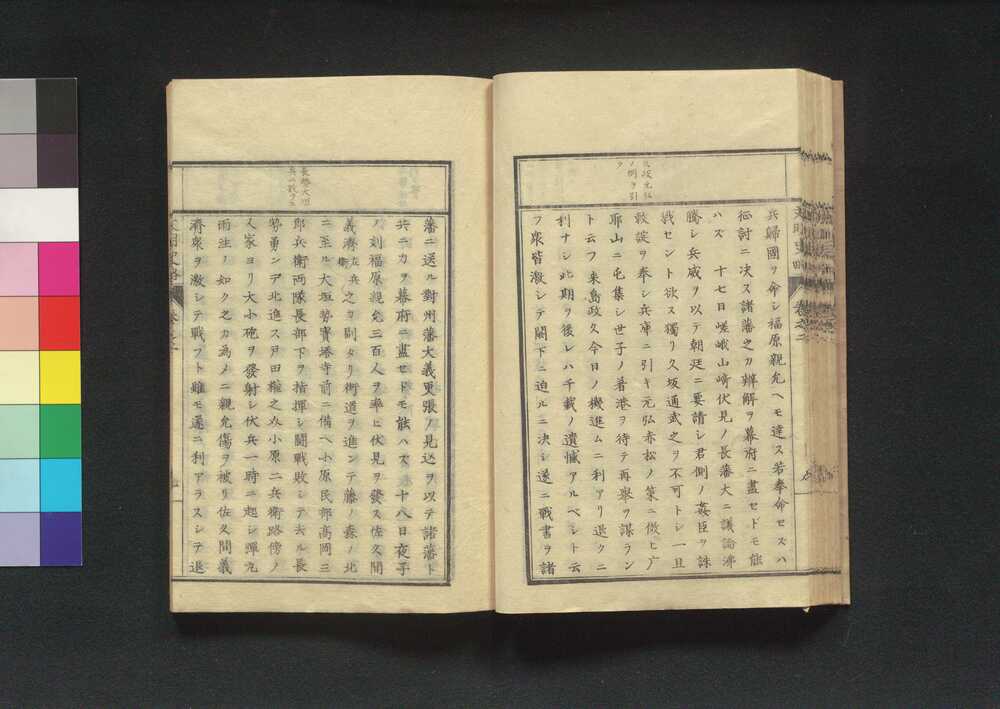 久坂元弘
ノ例ヲ引
ク
兵歸國ヲ命シ福原親允ヘモ達ス若奉命セスハ
征討ニ決ス諸藩之カ辨解ヲ幕府ニ盡セドモ能
ハズ 十七日嵯峨山﨑伏見ノ長藩大ニ議論沸
騰シ兵威ヲ以テ朝廷ニ要請シ君側ノ姦臣ヲ誅
戮セント欲ス獨リ久坂通武之ヲ不可トシ一旦
敦諚ヲ奉シ兵庫ニ引キ元弘赤松ノ策ニ倣ヒ广
耶山ニ屯集シ世子ノ着港ヲ待テ再舉ヲ謀ラン
ト云フ来島政久今日ノ機進ムニ利アリ退クニ
利ナシ此期ヲ後レハ千載ノ遺憾アルベシト云
フ衆皆激シテ闕下ニ迫ルニ決シ遂ニ戰書ヲ諸
藩ニ送ル對州藩大義更張ノ見込ヲ以テ諸藩ト
共ニ力ヲ幕府ニ盡セドモ能ハズ 十八日夜子
ノ刻福原親允三百人ヲ率ヒ伏見ヲ發ス佐久間
義濟佐兵衛之カ副タリ街道ヲ進ンデ藤ノ森ノ北
ニ至ル大垣勢寶塔寺前ニ備ヘ小原民部髙岡三
郎兵衛両隊長部下ヲ指揮シ鬪戰敗シテ去ル長
勢勇ンデ北進ス戸田權之𠆢小原二兵衛路傍ノ
人家ヨリ大小砲ヲ發射シ伏兵一時ニ起シ彈丸
雨注ノ如ク之カ為メニ親允傷ヲ被リ佐久間義
濟衆ヲ激シテ戰フト雖モ遂ニ利アラスシテ退
長勢大垣
兵ト戰フ